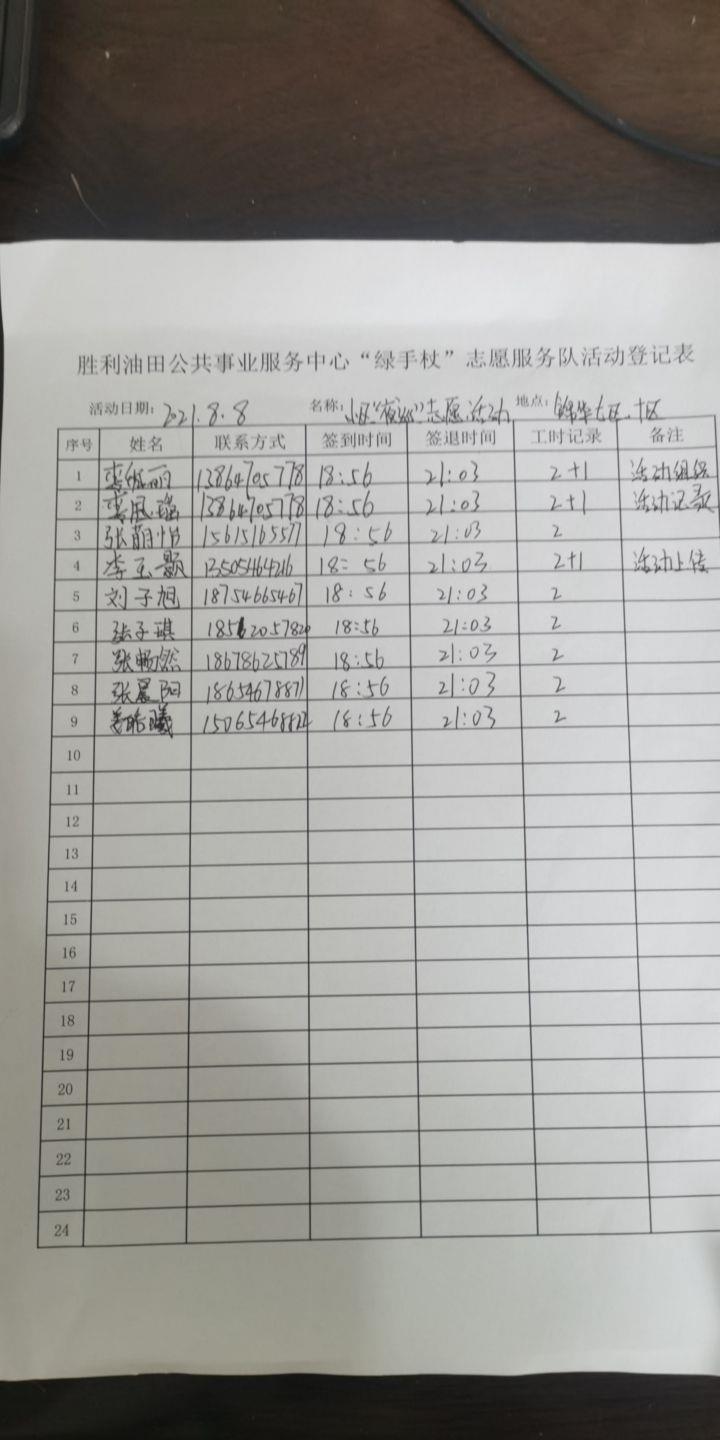 胜利油田公共事业服务中心“绿手杖”志愿服务队活动登记表
活动日期：2021.8.8 名称：小区“夜巡”志愿活动 地点：锦华 区
序号 姓名 联系方式 签到时间 签退时间 工时记录 备注
1 丽 13864705778 18:56 21:03 2+1 活动组织
2 13864705778 18:56 21:03 2+1 活动记录
3 张萌怡 15615165577 18:56 21:03 2
4 李玉颢 13505464216 18:56 21:03 2+1 活动上传
5 刘子旭 18754665467 18:56 21:03 2
6 张子琪 18562057820 18:56 21:03 2
7 张畅然 18678625789 18:56 21:03 2
8 张晨阳 18654678871 18:56 21:03 2
9 18:56 21:03 2
10
11
12
13
14
15
16
17
18
19
20
21
22
23
24